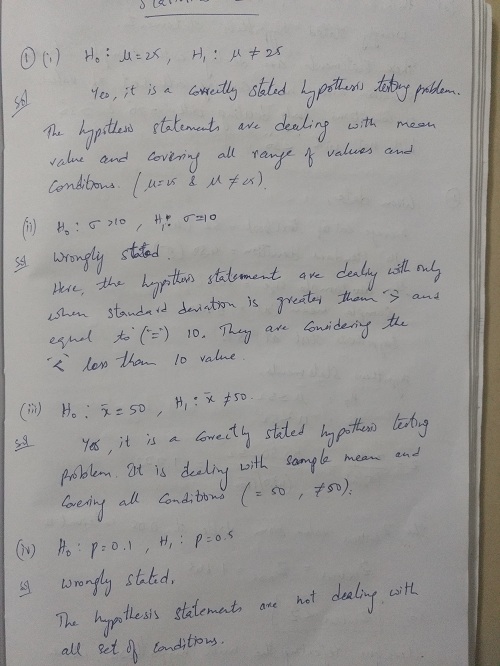 ① (i) H₀: μ=25, H₁: μ≠25
Sol Yes, it is a correctly stated hypothesis testing problem.
The hypothesis statements are dealing with mean
value and covering all range of values and
conditions. (μ=25 & μ≠25).
(ii) H₀: σ>10, H₁: σ=10
Sol Wrongly stated.
Here, the hypothesis statement are dealing with only
when standard deviation is greater them ">" and
equal to ("=") 10. They are considering the
"<" less than 10 value.
(iii) H₀: x̄=50, H₁: x̄≠50.
Sol Yes, it is a correctly stated hypothesis testing
problem. It is dealing with sample mean and
covering all conditions (=50, ≠50).
(iv) H₀: p=0.1, H₁: p=0.5
Sol Wrongly stated.
The hypothesis statements are not dealing with
all set of conditions.